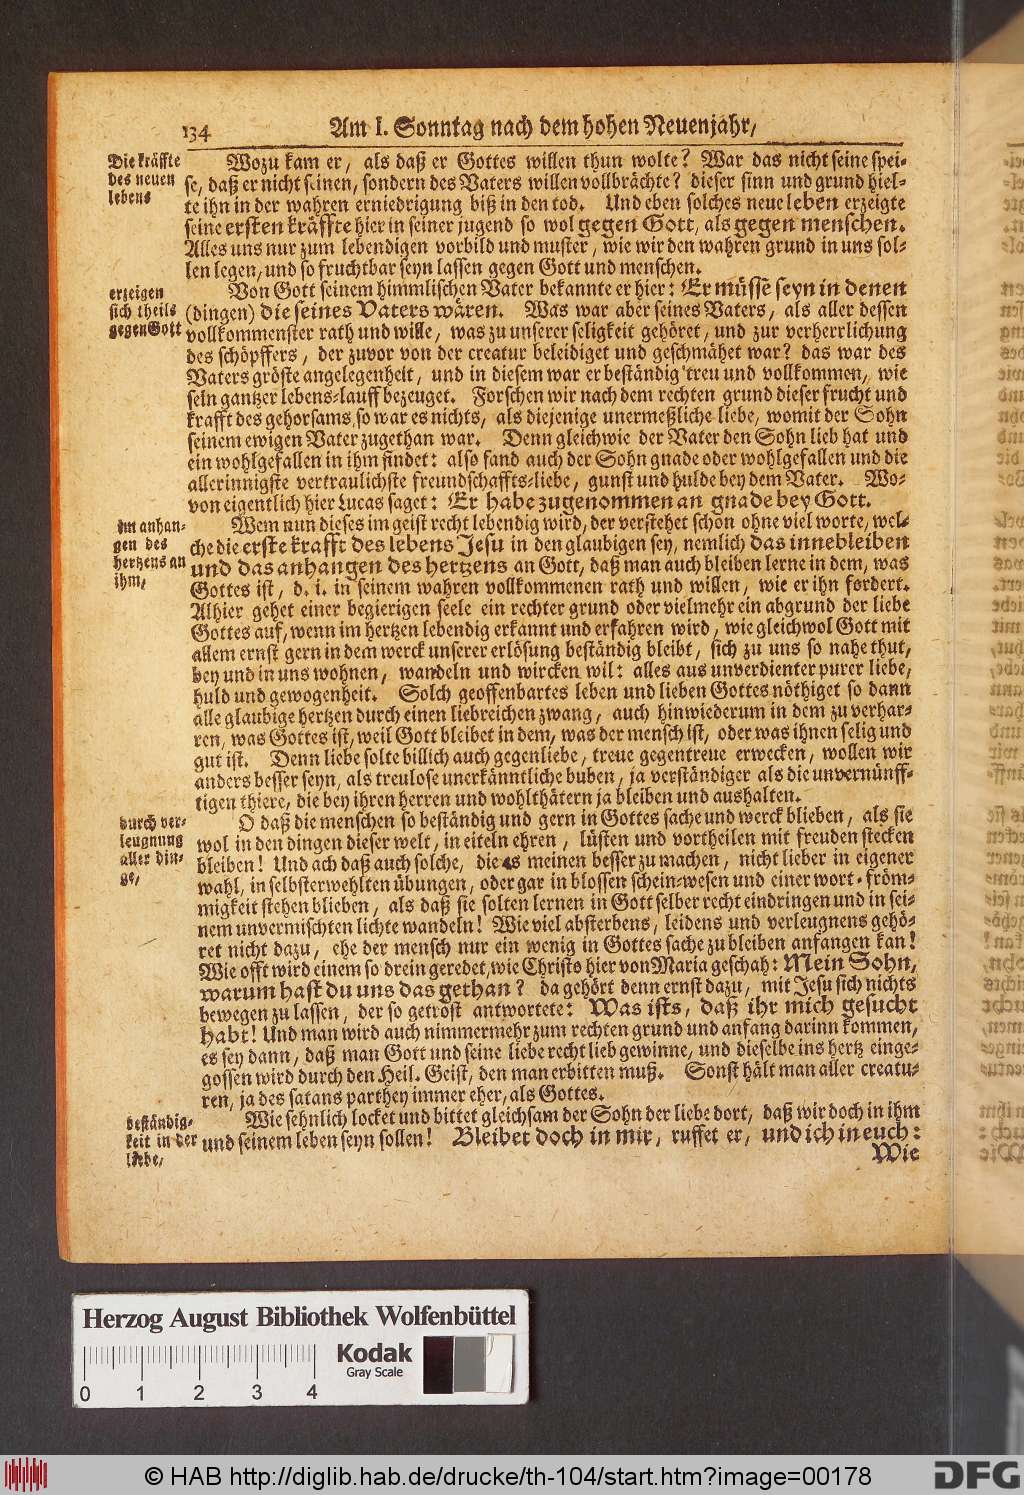 134
Am I. Sonntag nach dem hohen Neuenjahr/
Die kräffte
des neuen
lebens
Wozu kam er, als daß er Gottes willen thun wolte? War das nicht seine spei-
se, daß er nicht seinen, sondern des Vaters willen vollbrächte? dieser sinn und grund hiel-
te ihn in der wahren erniedrigung biß in den tod. Und eben solches neue leben erzeigte
seine ersten kräffte hier in seiner jugend so wol gegen Gott, als gegen menschen.
Alles uns nur zum lebendigen vorbild und muster, wie wir den wahren grund in uns sol-
len legen, und so fruchtbar seyn lassen gegen Gott und menschen.
erzeigen
sich theils
gegen Gott
Von Gott seinem himmlischen Vater bekannte er hier: Er müsse seyn in denen
(dingen) die seines Vaters wären. Was war aber seines Vaters, als aller dessen
vollkommenster rath und wille, was zu unserer seligkeit gehöret, und zur verherrlichung
des schöpffers, der zuvor von der creatur beleidiget und geschmähet war? das war des
Vaters gröste angelegenheit, und in diesem war er beständig treu und vollkommen, wie
sein gantzer lebens-lauff bezeuget. Forschen wir nach dem rechten grund dieser frucht und
krafft des gehorsams, so war es nichts, als diejenige unermeßliche liebe, womit der Sohn
seinem ewigen Vater zugethan war. Denn gleichwie der Vater den Sohn lieb hat und
ein wohlgefallen in ihm findet: also fand auch der Sohn gnade oder wohlgefallen und die
allerinnigste vertraulichste freundschaffts-liebe, gunst und hulde bey dem Vater. Wo-
von eigentlich hier Lucas saget: Er habe zugenommen an gnade bey Gott.
im anhan-
gen des
hertzens an
ihm,
Wem nun dieses im geist recht lebendig wird, der verstehet schon ohne viel worte, wel-
che die erste krafft des lebens Jesu in den glaubigen sey, nemlich das innebleiben
und das anhangen des hertzens an Gott, daß man auch bleiben lerne in dem, was
Gottes ist, d. i. in seinem wahren vollkommenen rath und willen, wie er ihn fordert.
Alhier gehet einer begierigen seele ein rechter grund oder vielmehr ein abgrund der liebe
Gottes auf, wenn im hertzen lebendig erkannt und erfahren wird, wie gleichwol Gott mit
allem ernst gern in dem werck unserer erlösung beständig bleibt, sich zu uns so nahe thut,
bey und in uns wohnen, wandeln und wircken wil: alles aus unverdienter purer liebe,
huld und gewogenheit. Solch geoffenbartes leben und lieben Gottes nöthiget so dann
alle glaubige hertzen durch einen liebreichen zwang, auch hinwiederum in dem zu verhar-
ren, was Gottes ist, weil Gott bleibet in dem, was der mensch ist, oder was ihnen selig und
gut ist. Denn liebe solte billich auch gegenliebe, treue gegentreue erwecken, wollen wir
anders besser seyn, als treulose unerkänntliche buben, ja verständiger als die unvernünff-
tigen thiere, die bey ihren herren und wohlthätern ja bleiben und aushalten.
durch ver-
leugnung
aller din-
ge,
O daß die menschen so beständig und gern in Gottes sache und werck blieben, als sie
wol in den dingen dieser welt, in eiteln ehren, lüsten und vortheilen mit freuden stecken
bleiben! Und ach daß auch solche, die es meinen besser zu machen, nicht lieber in eigener
wahl, in selbsterwehlten übungen, oder gar in blossen schein-wesen und einer wort-fröm-
migkeit stehen blieben, als daß sie solten lernen in Gott selber recht eindringen und in sei-
nem unvermischten lichte wandeln! Wie viel absterbens, leidens und verleugnens gehö-
ret nicht dazu, ehe der mensch nur ein wenig in Gottes sache zu bleiben anfangen kan!
Wie offt wird einem so drein geredet, wie Christo hier von Maria geschah: Mein Sohn,
warum hast du uns das gethan? da gehört denn ernst dazu, mit Jesu sich nichts
bewegen zu lassen, der so getrost antwortete: Was ists, daß ihr mich gesucht
habt! Und man wird auch nimmermehr zum rechten grund und anfang darinn kommen,
es sey dann, daß man Gott und seine liebe recht lieb gewinne, und dieselbe ins hertz einge-
gossen wird durch den Heil. Geist, den man erbitten muß. Sonst hält man aller creatu-
ren, ja des satans parthey immer eher, als Gottes.
beständig-
keit in der
liebe,
Wie sehnlich locket und bittet gleichsam der Sohn der liebe dort, daß wir doch in ihm
und seinem leben seyn sollen! Bleibet doch in mir, ruffet er, und ich in euch:
Wie
Herzog August Bibliothek Wolfenbüttel
Kodak
Gray Scale
0 1 2 3 4
© HAB http://diglib.hab.de/drucke/th-104/start.htm?image=00178
DFG